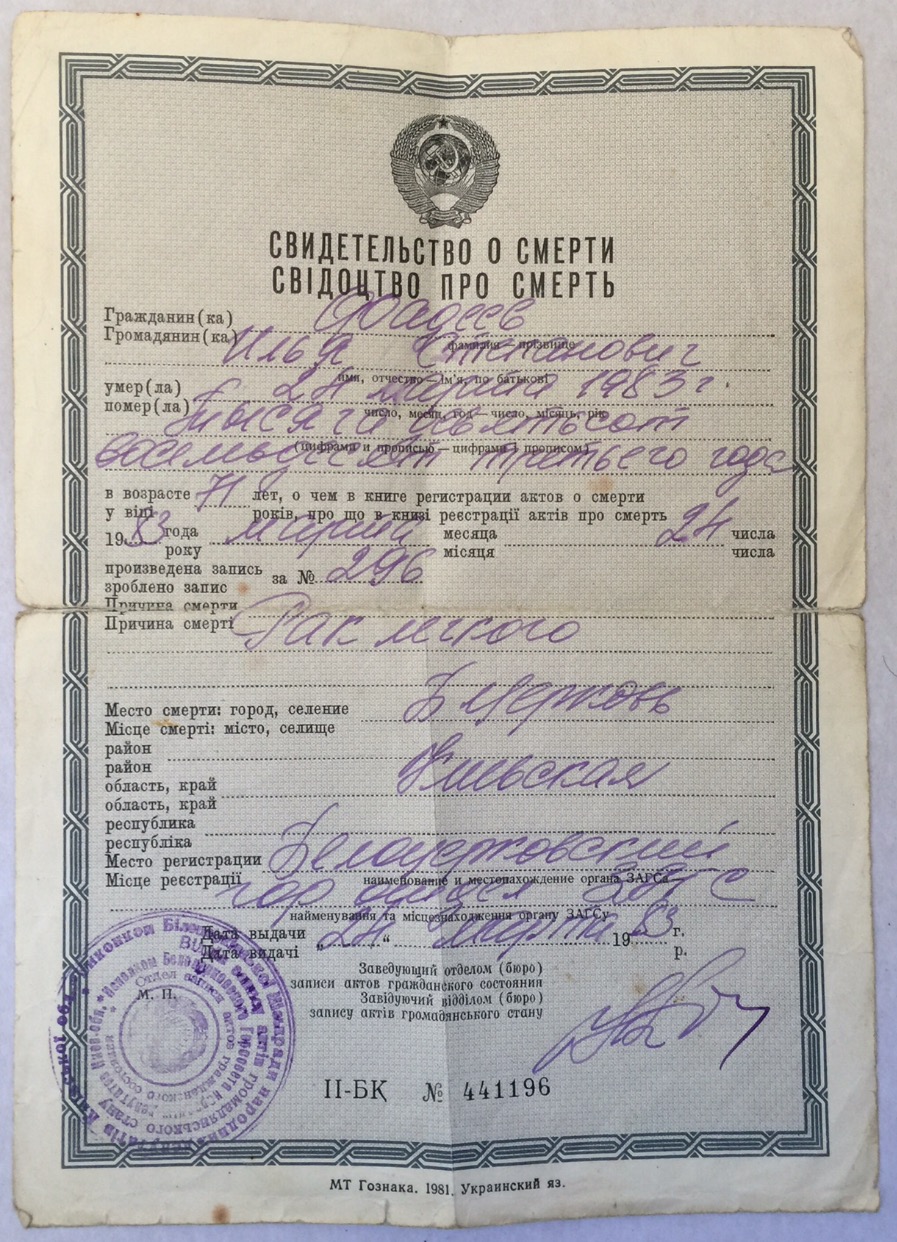 СВИДЕТЕЛЬСТВО О СМЕРТИ
СВІДОЦТВО ПРО СМЕРТЬ
Гражданин(ка) Фадеев
Громадянин(ка)
фамилия — прізвище
Илья Степанович
имя, отчество — ім'я, по батькові
умер(ла) 24 марта 1983 г.
помер(ла)
число, месяц, год — число, місяць, рік
тысяча девятьсот
(цифрами и прописью — цифрами і прописом)
восемьдесят третьего года
в возрасте 71 лет, о чем в книге регистрации актов о смерти
у віці років, про що в книзі реєстрації актів про смерть
1983 года марта месяца 24 числа
року місяця числа
произведена запись за № 296
зроблено запис
Причина смерти
Причина смерті Рак легкого
Место смерти: город, селение Б Церковь
Місце смерті: місто, селище
район
район
область, край Киевская
область, край
республика
республіка
Место регистрации Белоцерковский
Місце реєстрації
наименование и местонахождение органа ЗАГСа
гор ЗАГС
найменування та місцезнаходження органу ЗАГСу
Дата выдачи „24“ марта 1983 г.
Дата видачі р.
Заведующий отделом (бюро)
записи актов гражданского состояния
Завідуючий відділом (бюро)
запису актів громадянського стану
М. П.
II-БК № 441196
МТ Гознака. 1981. Украинский яз.